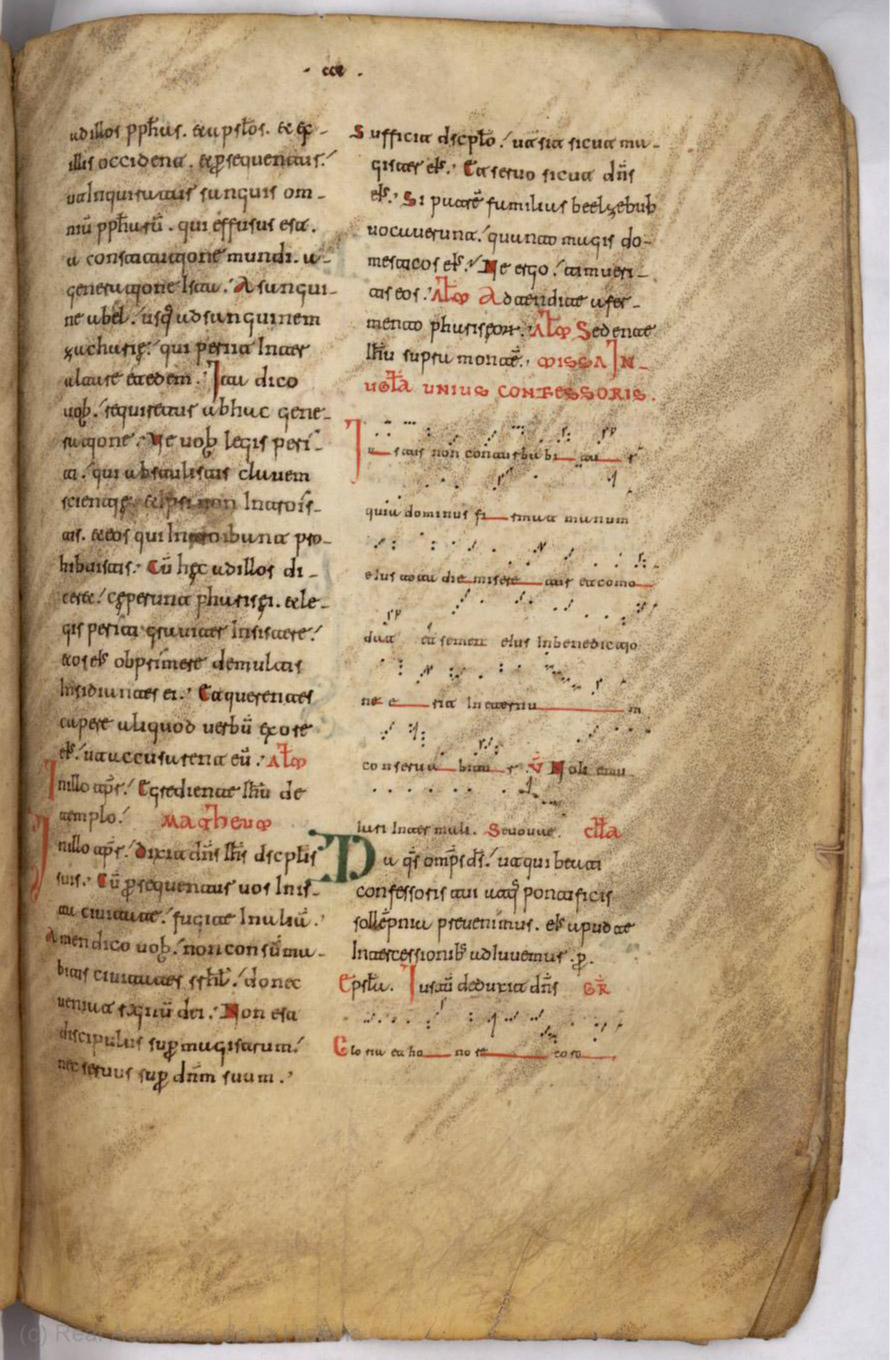 · ccc ·
ad illos pphas. & apłos. & ex
illis occident. & p̱sequentur.
ut Inquiratur sanguis om-
niū pphaꝝ. qui effusus est.
a constitutione mundi. a-
generatione Ista. A sangui-
ne abel. usq̨ ad sanguinem
zacharię. qui periit Inter
altare et edem. Ita dico
uob. requiretur ab hac gene-
ratione. Ve uob legis peri-
ti. qui abstulistis clauem
scientię. & ipsi non Introis-
tis. & eos qui Introibunt pro-
hibuistis. Cū hęc ad illos di-
ceret. cęperunt pharisęi. & le-
gis periti grauiter Insistere.
& os eł opprimere de multis
Insidiantes ei. Et querentes
capere aliquod uerbū ex ore
eł. ut accusarent eū. Alio
In illo tempł. Egrediente Ihu de
templo. Matheum
In illo tempł. Dixit dn̄s Ihs discplis
suis. Cū p̱sequentur uos In is-
ta ciuitate. fugite In aliā.
Amen dico uob. non consūma-
bitis ciuitates israhł. donec
ueniat regnū dei. Non est
discipulus sup̱ magistrum.
nec seruus sup̱ dn̄m suum.
Sufficit discplo. ut sit sicut ma-
gister eł. Et seruo sicut dn̄s
eł. Si patrē familias beelzebub
uocauerunt. quanto magis do-
mesticos eł. Ne ergo. timueri-
tis eos. Alio Adtendite a fer-
mento phariseoꝝ. Alio Sedente
Ihu supra montē. MISSA IN-
UGLA UNIUS CONFESSORIS.
Iu stus non conturba bi tur
quia dominus fi rmat manum
eius tota die misere tur et como
dat et semen eius In benedictio
ne e rit In eternu m
conserua bitur. V̄ Noli emu
lari Inter mali. Seuouae. cłła
Da qs omps ds. ut qui beati
confessoris tui utq̨ pontificis
sollēpnia preuenimus. eł apud te
Intercessionib adiuuemus. p̱.
Epsła. Iustū deduxit dn̄s GR̄
Glo ria et ho no re co ro